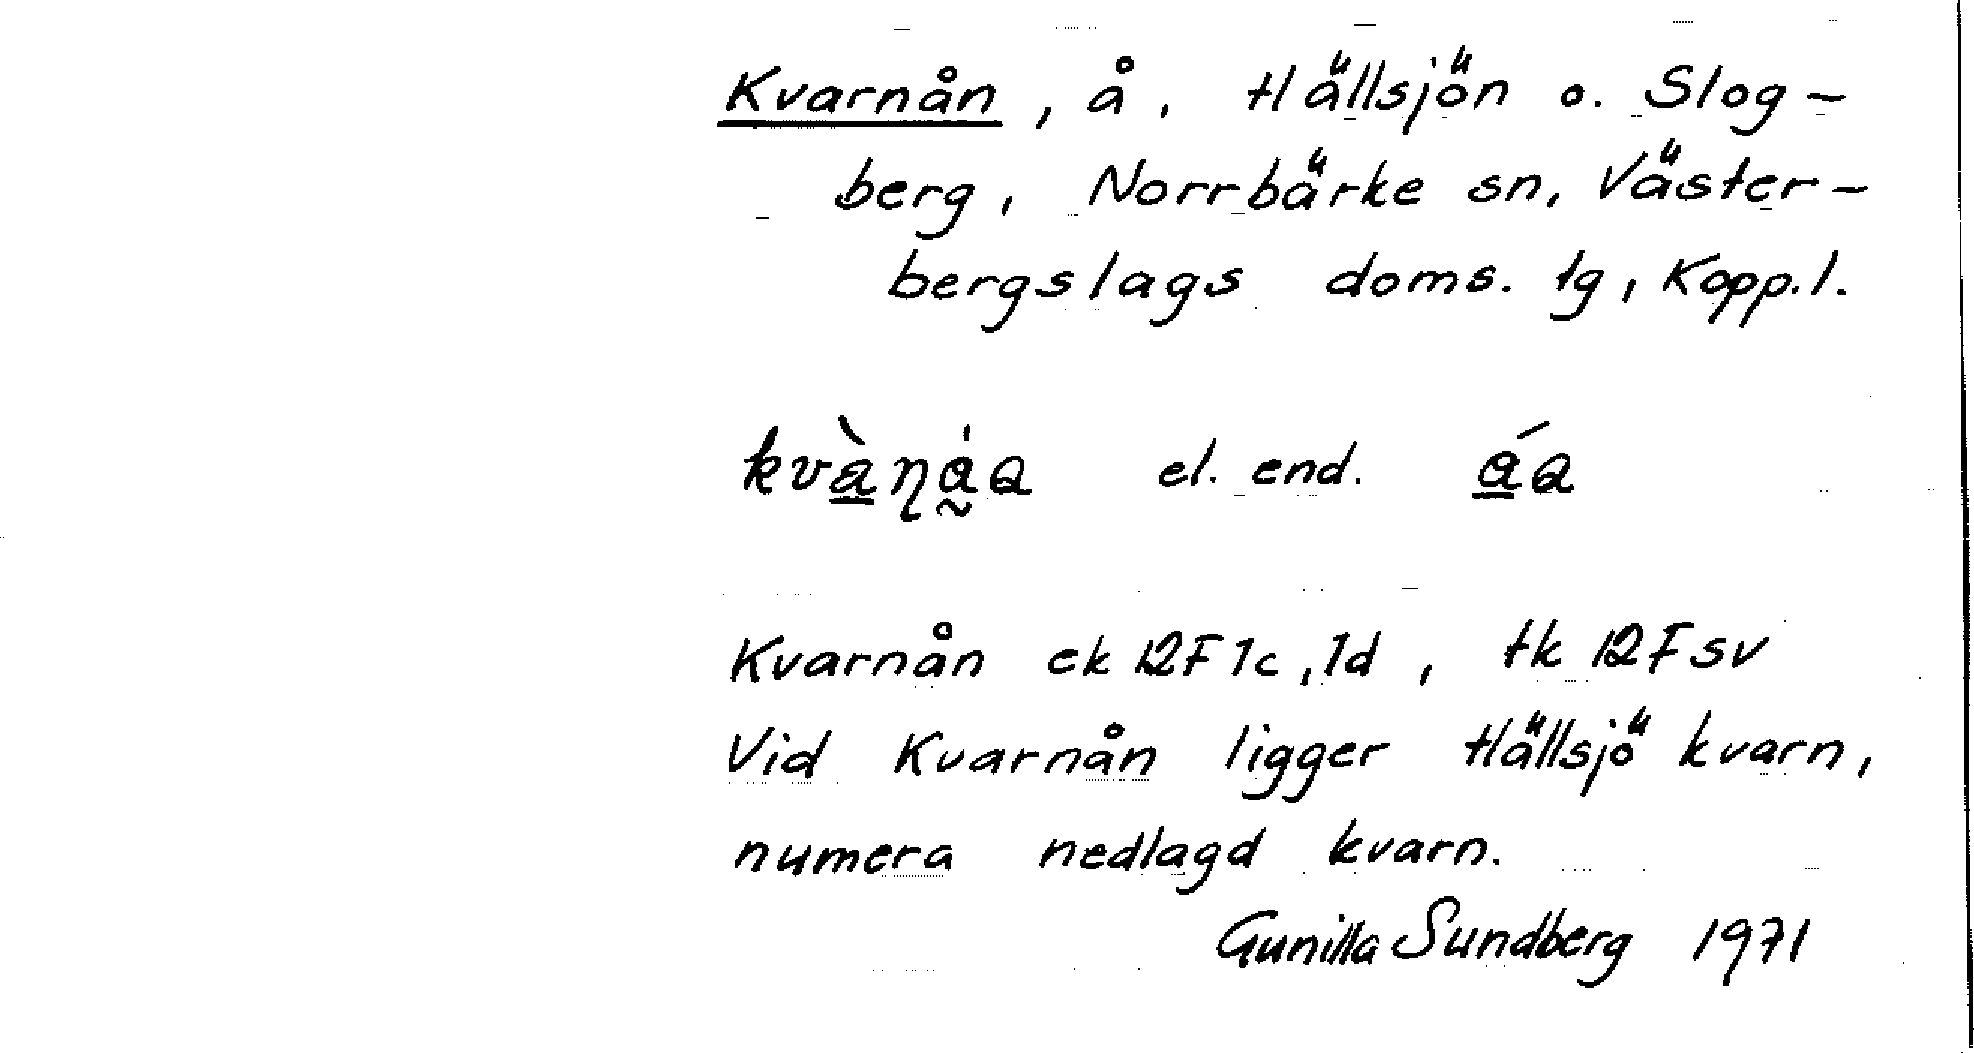 Kvarnån, å, Hällsjön o. Slog-
berg, Norrbärke sn, Väster-
bergslags doms. tg, Kopp.l.
el. end.
Kvarnån ek 12F 1c, 1d, tk 12F sv
Vid Kvarnån ligger Hällsjö kvarn,
numera nedlagd kvarn.
Gunilla Sundberg 1971